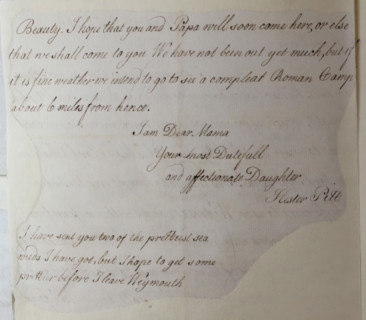 Beauty. I hope that you and Papa will soon come here, or else
that we shall come to you. We have not been out yet much, but if
it is fine weather we intend to go to see a compleat Roman Camp
about 6 miles from hence.
I am Dear Mama
Your most Dutifull
and affectionate Daughter
Hester Pitt
I have sent you two of the prettiest sea
weeds I have got, but I hope to get some
prettier before I leave Weymouth